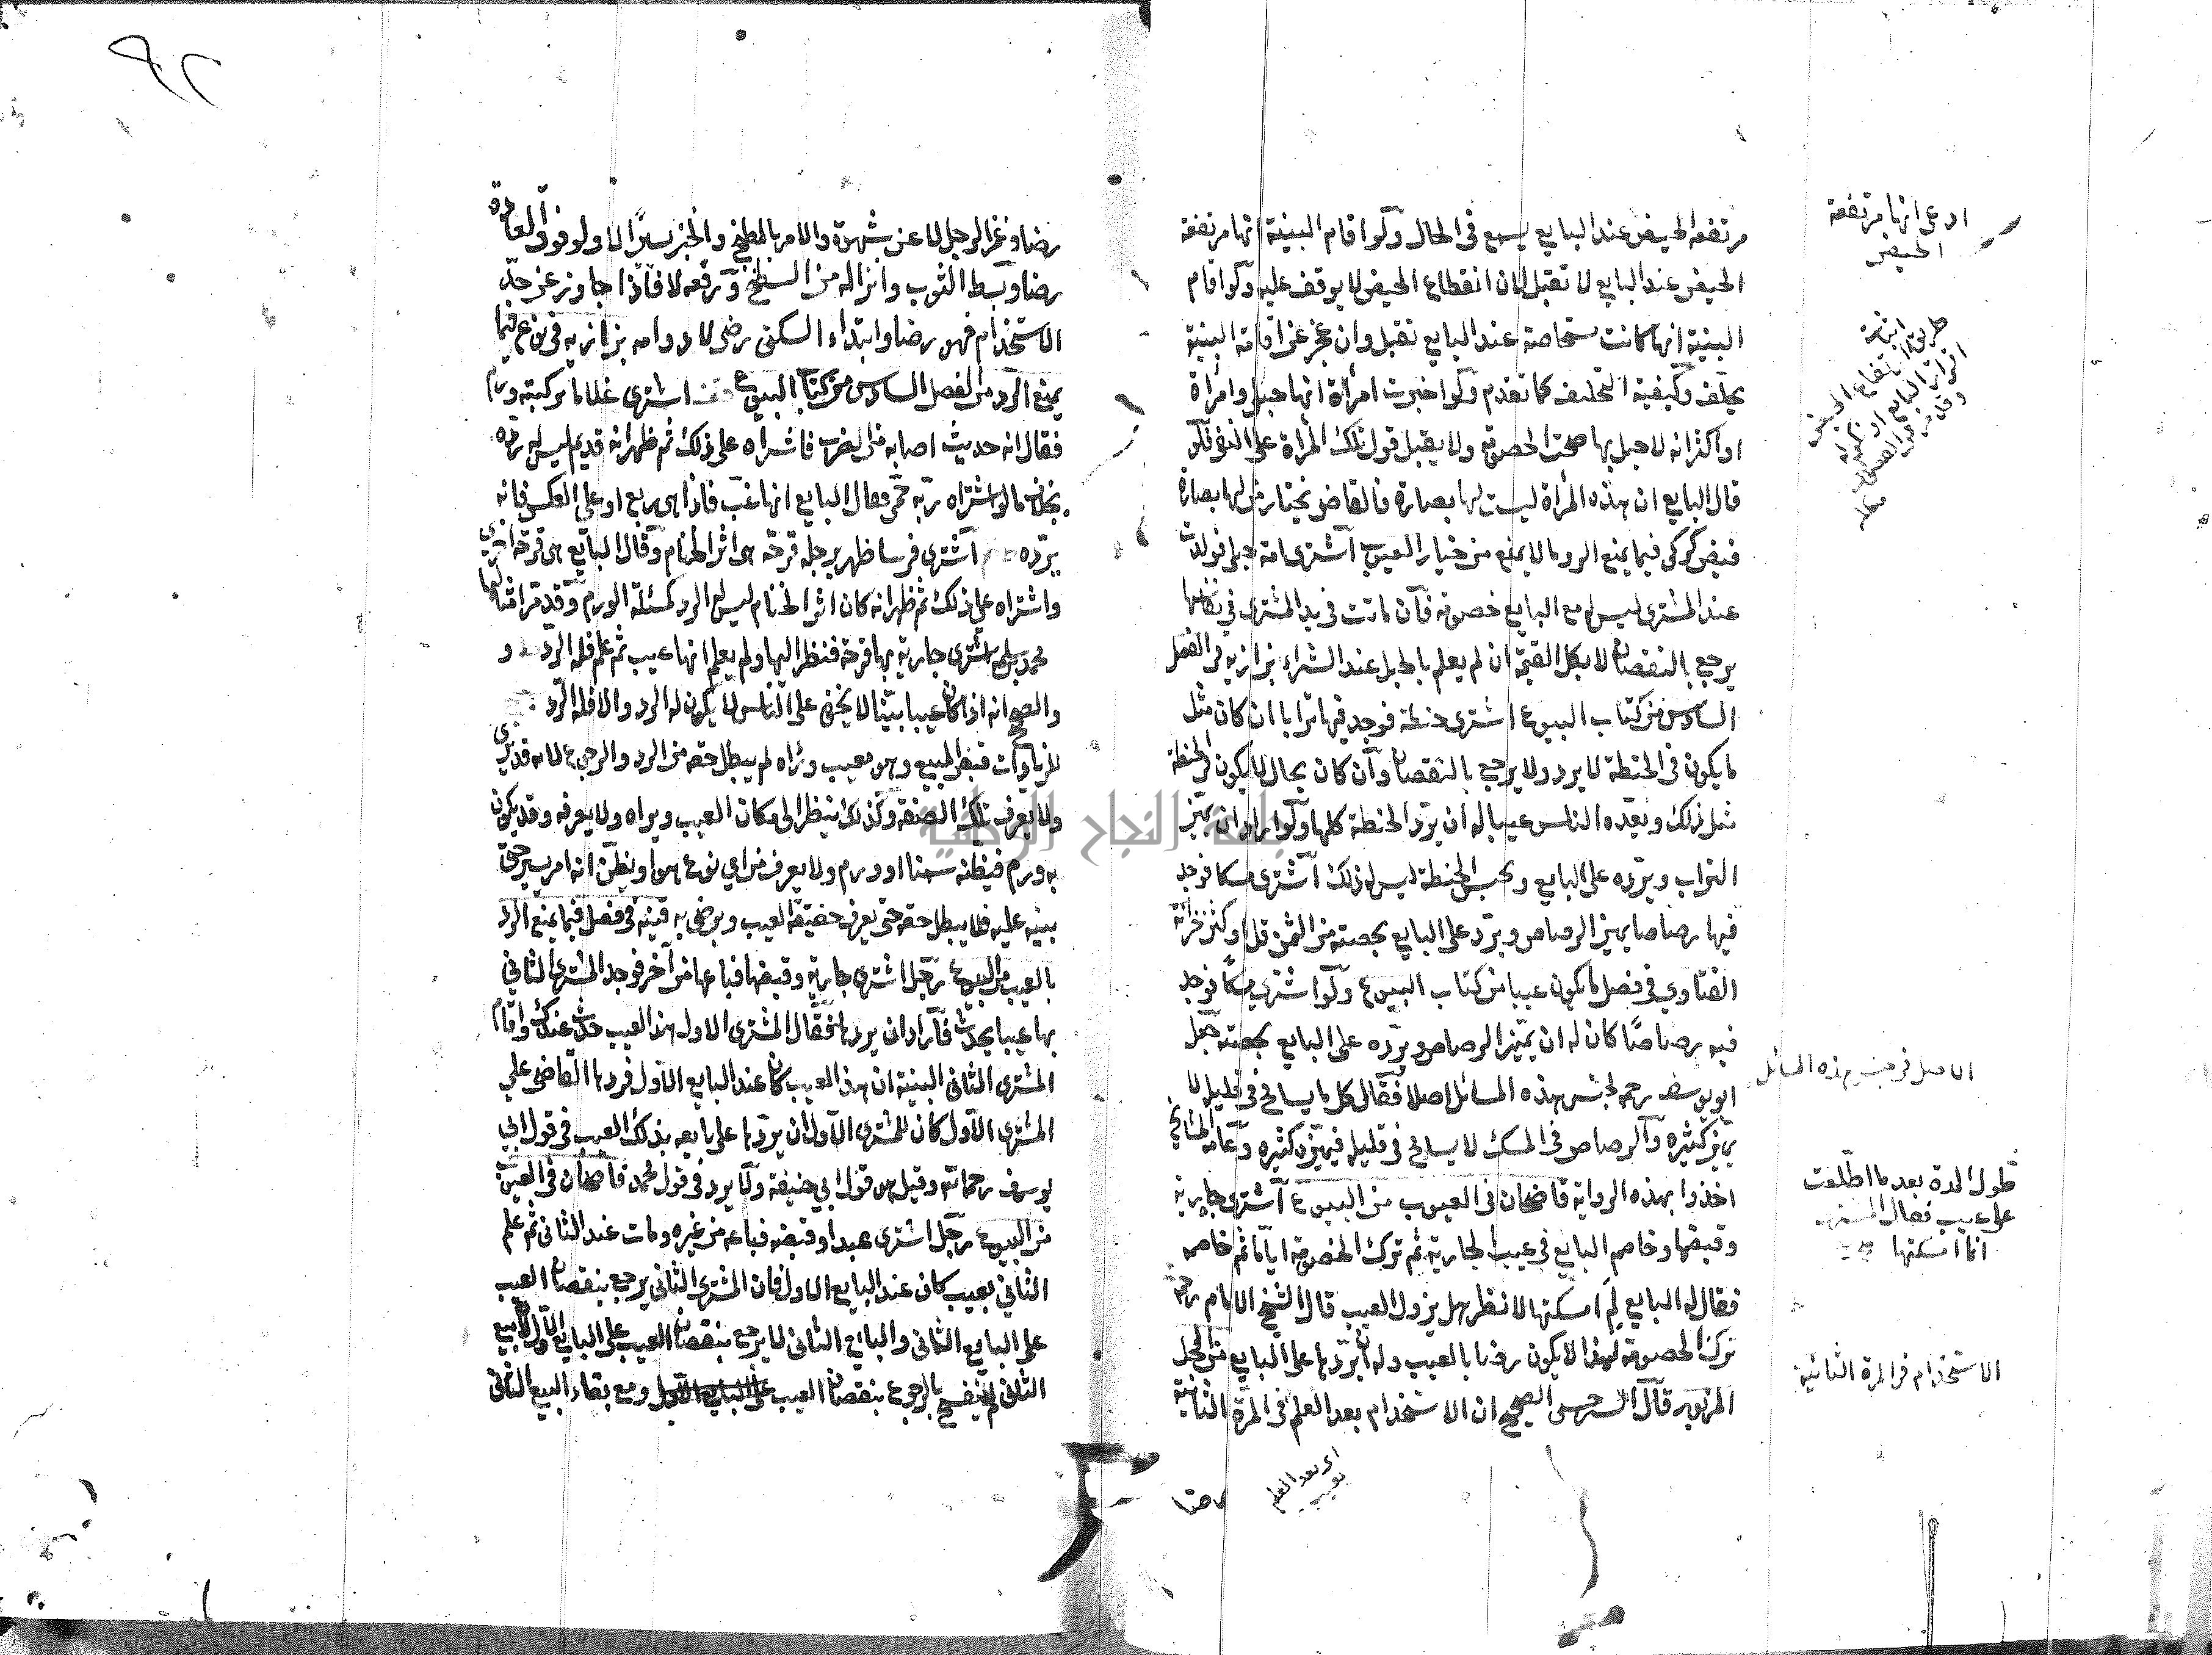 مرتفعة الحيض عند البايع يسمع في الحال ولو اقام البينة انها مرتفعة
الحيض عند البايع لا تقبل لان انقطاع الحيض لا يوقف عليه ولو اقام
البينة انها كانت مستحاضة عند البايع تقبل وان عجز عن اقامة البينة
يحلف وكيفية التحليف كما تقدم ولو اخبرت امرأة انها حبلى وامرأة
او اكثر انه لا حبل بها صحت الخصومة ولا يقبل قول تلك المرأة على النفي ولو
قال البايع ان هذه المرأة ليست لها بصارة فالقاضي يختار من لها بصارة
فيض كركي فيما يمنع الرد وما لا يمنع من خيار العيوب اشترى امة حبلى فولدت
عند المشترى ليس له مع البايع خصومة فان ماتت في يد المشترى في نفاسها
يرجع بالنقصان لا بكل القيمة ان لم يعلم بالحبل عند الشراء بزازيه في الفصل
السادس من كتاب البيوع اشترى حنطة فوجد فيها ترابا ان كان مثل
ما يكون في الحنطة لا يرد ولا يرجع بالنقصان وان كان بحال لا يكون في الحنطة
مثل ذلك ويعده الناس عيبا له ان يرد الحنطة كلها ولو اراد ان يميز
التراب ويرده على البايع ويحبس الحنطة ليس له ذلك اشترى مسكا فوجد
فيها رصاصا يميز الرصاص ويرد على البايع بحصته من الثمن قل او كثر خزانة
الفتاوي في فصل ما يكون عيبا من كتاب البيوع ولو اشترى مسكا فوجد
فيه رصاصا كان له ان يميز الرصاص ويرده على البايع بحصته جعل
ابو يوسف رحمه لجنس هذه المسائل اصلا فقال كل ما يسامح في قليله لا
يميز كثيره والرصاص في المسك لا يسامح في قليله فيميز كثيره وعامة المشايخ
اخذوا بهذه الرواية قاضيخان في العيوب من البيوع اشترى جارية
وقبضها وخاصم البايع في عيب الجارية ثم ترك الخصومة اياما ثم خاصم
فقال له البايع لم امسكتها لانظر هل يزول العيب قال الشيخ الامام رحمه
ترك الخصومة لهذا لا يكون رضا بالعيب وله ان يردها على البايع من المحل
المزبور قال السرخسي الصحيح ان الاستخدام بعد العلم في المرة الثانية
اى بعد العلم
بعيب
رضا
ادعى انها مرتفعة
الحيض
الاصل في جنس هذه المسائل
طول المدة بعد ما اطلعت
على عيب فقال المشترى
انما امسكتها
الاستخدام في المرة الثانية
رضا وغمز الرجل لا عن شهوة والامر بالطبخ والخبز يسيرا لا ولو فوق العادة
رضا وبسط الثوب وانزاله من السطح ورفعه لا فاذا جاوز عن حد
الاستخدام فهو رضا وابتداء السكنى رضى لا دوامه بزازيه في نوع فيما
يمنع الرد من الفصل السادس من كتاب البيوع اشترى غلاما بركبته ورم
فقال انه حديث اصابه من الضرب فاشراه على ذلك ثم ظهر انه قديم ليس له رده
بخلاف ما لو اشتراه به حمى فقال البايع انها غب فاذا هى ربع او على العكس فانه
يرده اشترى فرسا ظهر برجله قرحة هى اثر الخنام وقال البايع هى قرحة اخرى
واشتراه على ذلك ثم ظهر انه كان اثر الخنام ليس له الرد كمسئلة الورم
اشترى جارية بها قرحة فنظر اليها ولم يعلم انها عيب ثم علم فله الرد و
والصحيح انه اذا كان عيبا بينا لا يخفى على الناس لا يكون له الرد والا فله الرد
قبض المبيع وهو معيب وراه لم يبطل حقه من الرد والرجوع لانه قد يرى
ولا يعرف تلك الصفة وكذلك ينظر الى مكان العيب ويراه ولا يعرفه وقد يكون
به ورم فيظنه سمنا او ورم ولا يعرف من اي نوع هو او يظن انه امر يسير حتى
بينه عليه فلا يبطل حقه حتى يعرف حقيقة العيب ويرضى به قنيه في فصل فيما يمنع الرد
بالعيب من البيوع رجل اشترى جارية وقبضها فباعها من آخر فوجد المشترى الثاني
بها عيبا يحدث فاراد ان يردها فقال المشترى الاول هذا العيب حدث عندك واقام
المشترى الثانى البينة ان هذا العيب كان عند البايع الاول فردها القاضى على
المشترى الاول كان للمشترى الاول ان يردها على بايعه بذلك العيب في قول ابي
يوسف رحمه الله وقيل هو قول ابي حنيفة ولا يرد في قول محمد قاضيخان في العيوب
من البيوع رجل اشترى عبدا وقبضه فباعه من غيره ومات عند الثانى ثم علم
الثاني بعيب كان عند البايع الاول فان المشترى الثانى يرجع بنقصان العيب
على البايع الثانى والبايع الثانى لا يرجع بنقصان العيب على البايع الاول لان بيع
الثانى لم ينفسخ بالرجوع بنقصان العيب ومع بقاء البيع الثانى
جامعة النجاح الوطنية